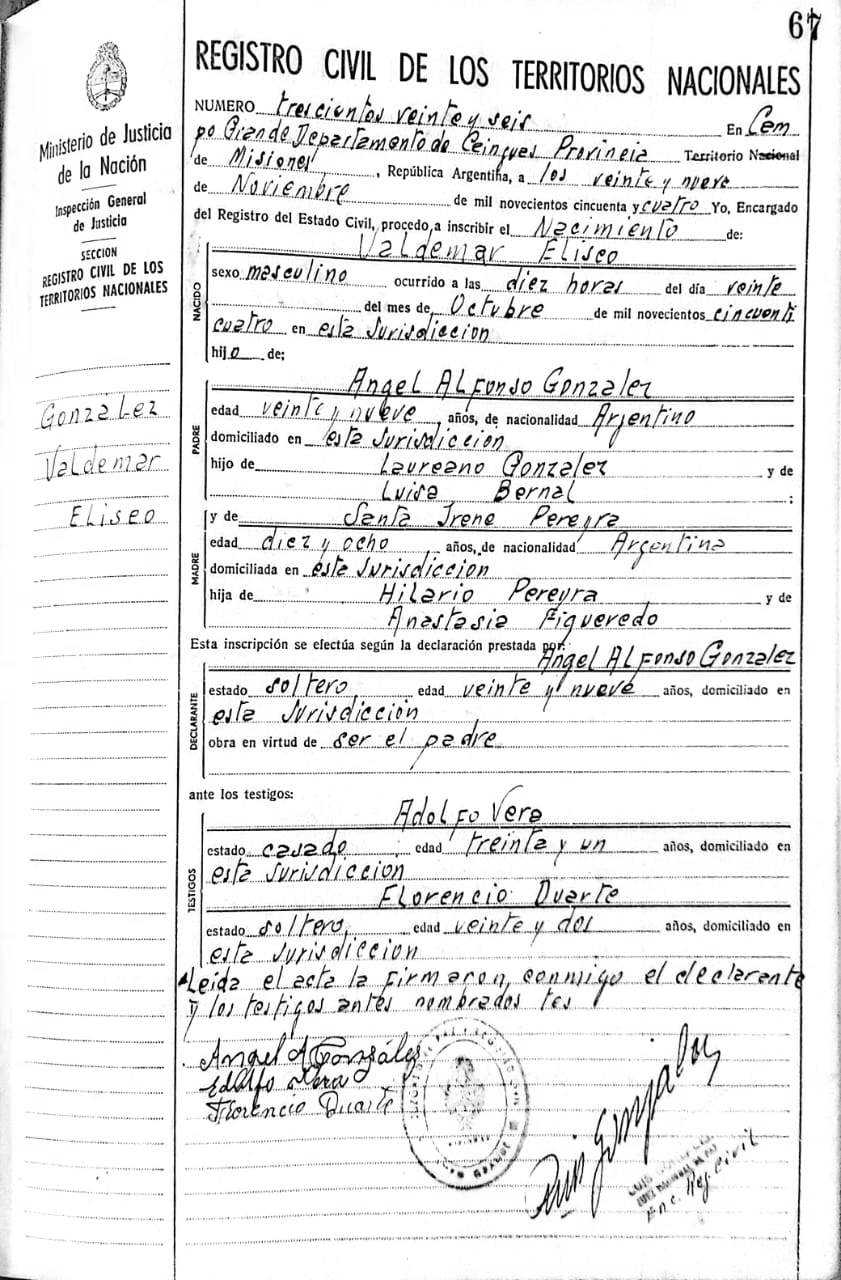 67
REGISTRO CIVIL DE LOS TERRITORIOS NACIONALES
Ministerio de Justicia
de la Nación
Inspección General
de Justicia
SECCION
REGISTRO CIVIL DE LOS
TERRITORIOS NACIONALES
Gonzàlez
Valdemar
Eliseo
NUMERO trescientos veinte y seis En Cam
po Grande Departamento de Cainguas Provincia Territorio Nacional
de Misiones, República Argentina, a los veinte y nueve
de Noviembre de mil novecientos cincuenta y cuatro Yo, Encargado
del Registro del Estado Civil, procedo a inscribir el Nacimiento de:
NACIDO
Valdemar Eliseo
sexo masculino ocurrido a las diez horas del día veinte
del mes de Octubre de mil novecientos cincuenti
cuatro en esta Jurisdiccion
hijo de;
PADRE
Angel Alfonso Gonzalez
edad veinte y nueve, años, de nacionalidad Argentino
domiciliado en esta Jurisdiccion
hijo de Laureano Gonzalez y de
Luisa Bernal ;
MADRE
y de Santa Irene Pereyra
edad diez y ocho, años, de nacionalidad Argentina
domiciliada en este Jurisdiccion
hija de Hilario Pereyra y de
Anastasia Figueredo
Esta inscripción se efectúa según la declaración prestada por:
Angel Alfonso Gonzalez
DECLARANTE
estado soltero, edad veinte y nueve años, domiciliado en
esta Jurisdicción
obra en virtud de ser el padre
ante los testigos:
TESTIGOS
Adolfo Vera
estado casado, edad treinta y un años, domiciliado en
esta Jurisdiccion
Florencio Duarte
estado soltero, edad veinte y dos años, domiciliado en
esta Jurisdiccion
Leida el acta la firmaron, conmigo el declarante
y los testigos antes nombrados tes
Angel A Gonzáles
Adolfo Vera
Florencio Duarte
Luis Gonzalez
Enc. Reg. Civil